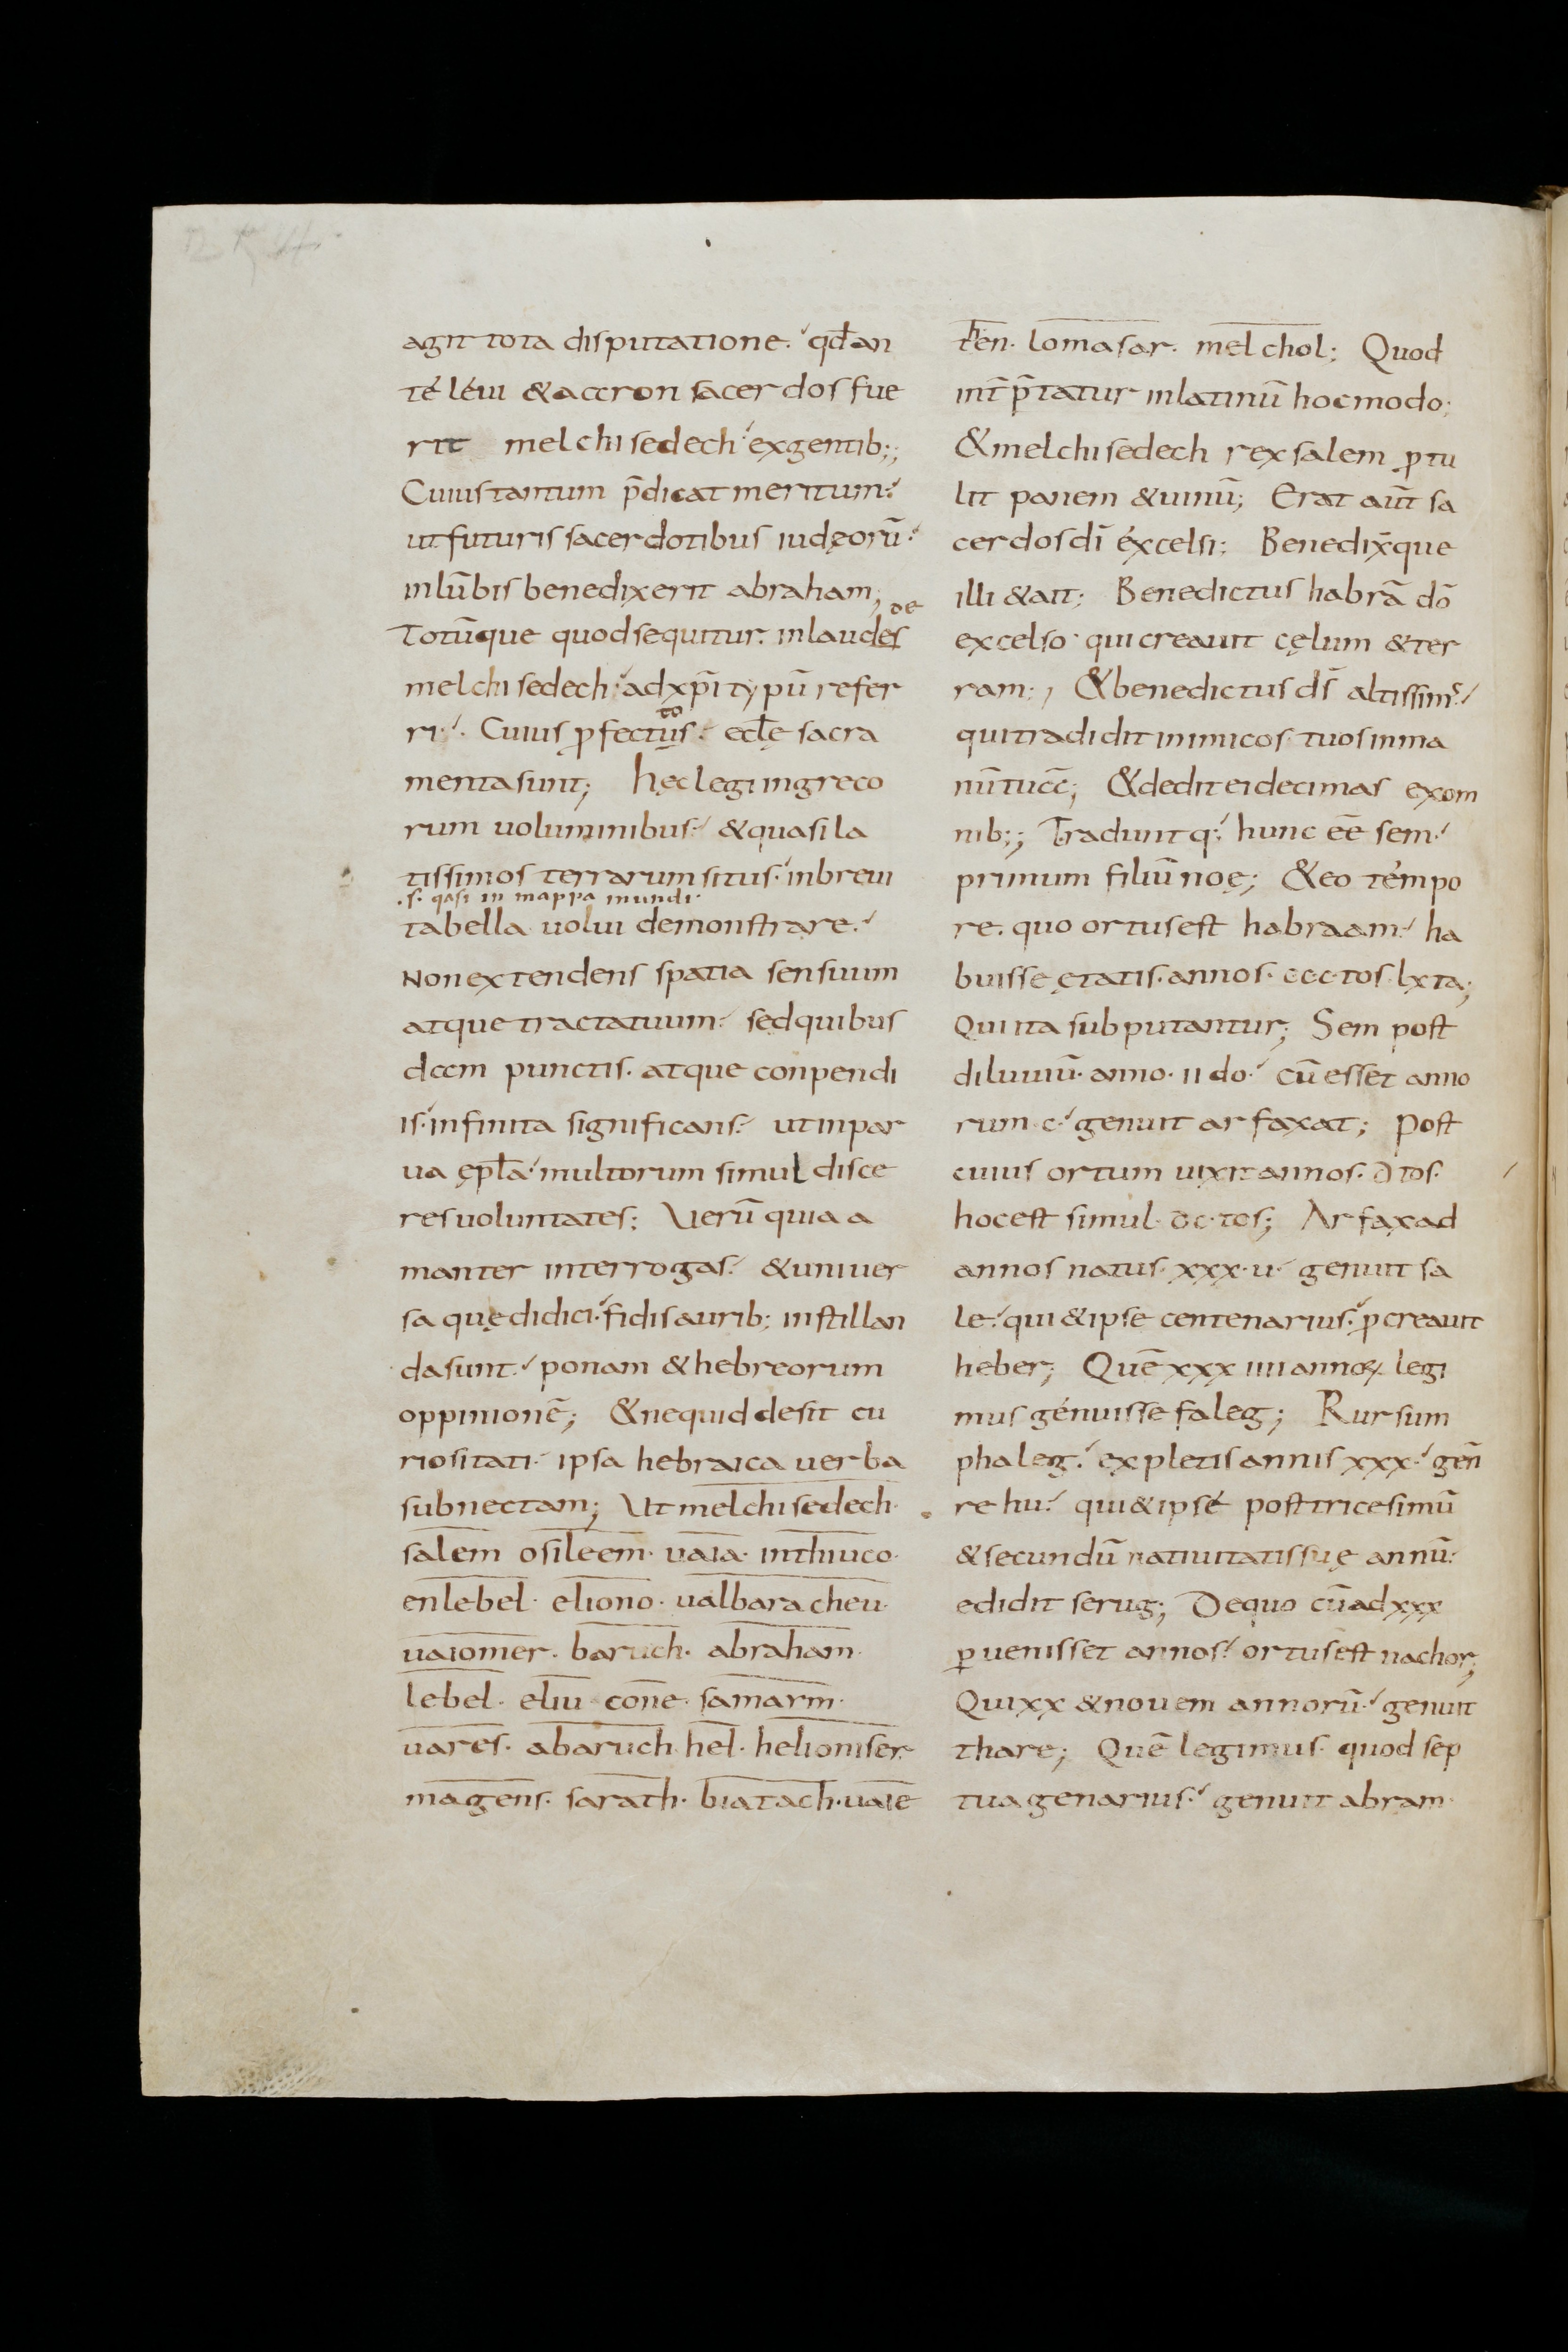 agit tota disputatione. qđ an
té léui & aaron sacerdos fue
rit melchisedech exgentib;;
Cuius tantum p̄dicat meritum.
ut futuris sacerdotibus iudęorū.
inlūbis benedixerit abraham;
de
Totūque quod sequitur. inlaudes
melchisedech. ad xp̄i typū refer
ri. Cuius ꝓfectus. eccłę sacra
to
menta sunt; Hęc legi ingreco
rum uoluminibus. & quasi la
tissimos terrarum situs. inbreui
.s. qasi in mappa mundi.
tabella uolui demonstrare.
Non extendens spatia sensuum
atque tractatuum. sed quibus
dam punctis. atque conpendi
is. infinita significans. ut inpar
ua ępła. multorum simul disce
res uoluntates; Uerū quia a
manter interrogas. & uniuer
sa quę didici. fidis aurib; instillan
da sunt. ponam & hebreorum
oppinionē; & nequid desit cu
riositati. ipsa hebraica uerba
subnectam; Ut melchisedech.
salem osileem. uaia. inthiuco.
enlebel. eliono. ualbaracheu.
uaiomer. baruch. abraham.
lebel. eliu cone. samarm.
uares. abaruch. hel. helioniser.
magens. sarath. biatach. uaie
then. lomasar. melchol; Quod
int̄p̄tatur inlatinū hocmodo;
& melchisedech rex salem ꝓtu
lit panem & uinū; Erat aut̄ sa
cerdos dī éxcelsi; Benedix̄que
illi & ait; Benedictus habrā dō
excelso. qui creauit cęlum & ter
ram; & benedictus ds̄ altissim᾿
qui tradidit inimicos tuos inma
nū tua; & dedit ei decimas exom
nib;; Tradunt q; hunc eē̄ sem.
primum filiū noę; & eo témpo
re. quo ortus est habraam. ha
buisse ętatis. annos. ccc.tos. lxta;
Qui ita subputantur; Sem post
diluuiū. anno. ii do. cū esset anno
rum. c. genuit arfaxat; Post
cuius ortum uixit annos. D tos.
hoc est simul. DC.tos; Arfaxad
annos natus. xxx.u. genuit sa
le. qui & ipse centenarius. ꝓcreauit
heber; Quē xxx iiii annoꝝ legi
mus génuisse faleg; Rursum
phaleg. expletis annis xxx. geñ
re hu. qui & ipsé post tricesimū
& secundū natiuitatis suę annū.
edidit serug; De quo cū ad xxx
ꝑuenisset annos. ortus est nachor;
Qui xx & nouem annorū. genuit
thare; Quē legimus. quod sep
tuagenarius. genuit abram.